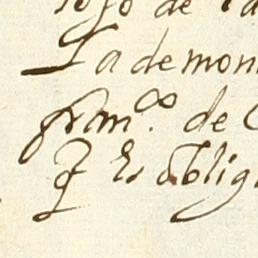 de la
La demon
fran.co de C
q es oblig